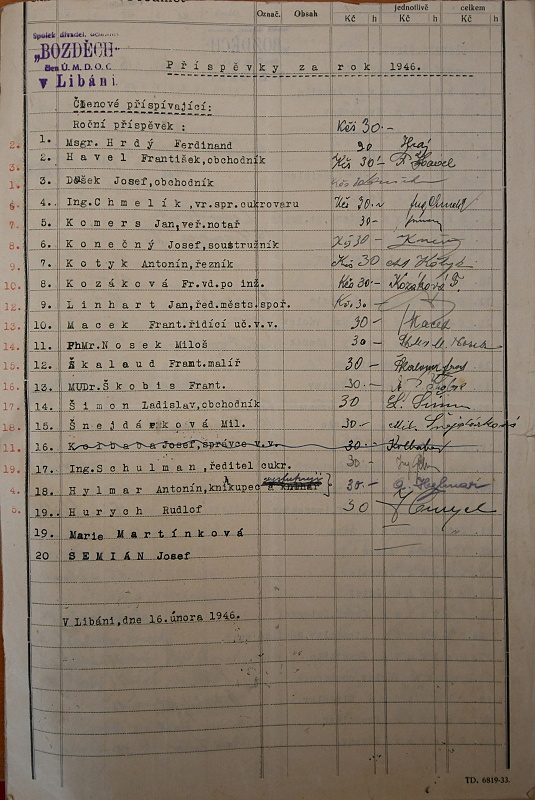 Označ. Obsah jednotlivě celkem
Kč h Kč h Kč h
Spolek divadel. ochotníků
„BOZDĚCH“
člen Ú. M. D. O. C.
v Libáni.
Příspěvky za rok 1946.
Členové přispívající:
Roční příspěvek : Kčs 30.-
2. 1. Msgr. Hrdý Ferdinand 30 Hrdý
3. 2. Havel František,obchodník Kčs 30- F. Havel
1. 3. Došek Josef,obchodník
6. 4. Ing.Chmelík,vr.spr.cukrovaru Kčs 30.- Ing Chmelík
7. 5. Komers Jan,veř.notář 30-
8. 6. Konečný Josef,soustružník Kčs 30-
9. 7. Kotyk Antonín,řezník Kčs 30 Kotyk
10. 8. Kozáková Fr.vd.po inž. Kčs 30.- Kozáková F.
12. 9. Linhart Jan,řed.městs.spoř. Kčs.30
13. 10. Macek Frant.řídící uč.v.v. 30- Macek
14. 11. PhMr.Nosek Miloš 30- Nosek
15. 12. Škalaud Frant.malíř 30- Škalaud
16. 13. MUDr.Škobis Frant. 30.-
17. 14. Šimon Ladislav,obchodník 30 L. Šimon
18. 15. Šnejdárková Mil. 30.- Mil. Šnejdárková
11. 16. Kolbaba Josef,správce v.v. 30.- Kolbaba
19. 17. Ing.Schulman,ředitel cukr. 30.-
4. 18. Hylmar Antonín,knihkupec 30.- A. Hylmar
5. 19.. Hurych Rudlof 30 Hurych
19. Marie Martínková
20 SEMIÁN Josef
V Libáni,dne 16.února 1946.
TD. 6819-33.